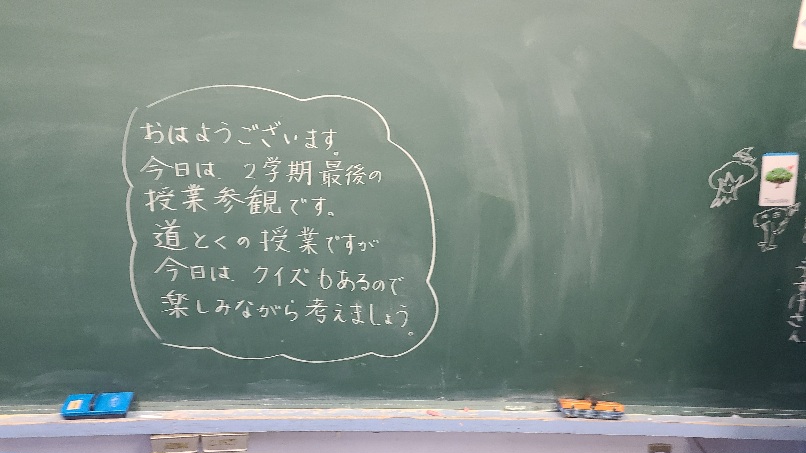 おはようございます。
今日は、2学期最後の
授業参観です。
道とくの授業ですが
今日は、クイズもあるので
楽しみながら考えましょう。
Thursday